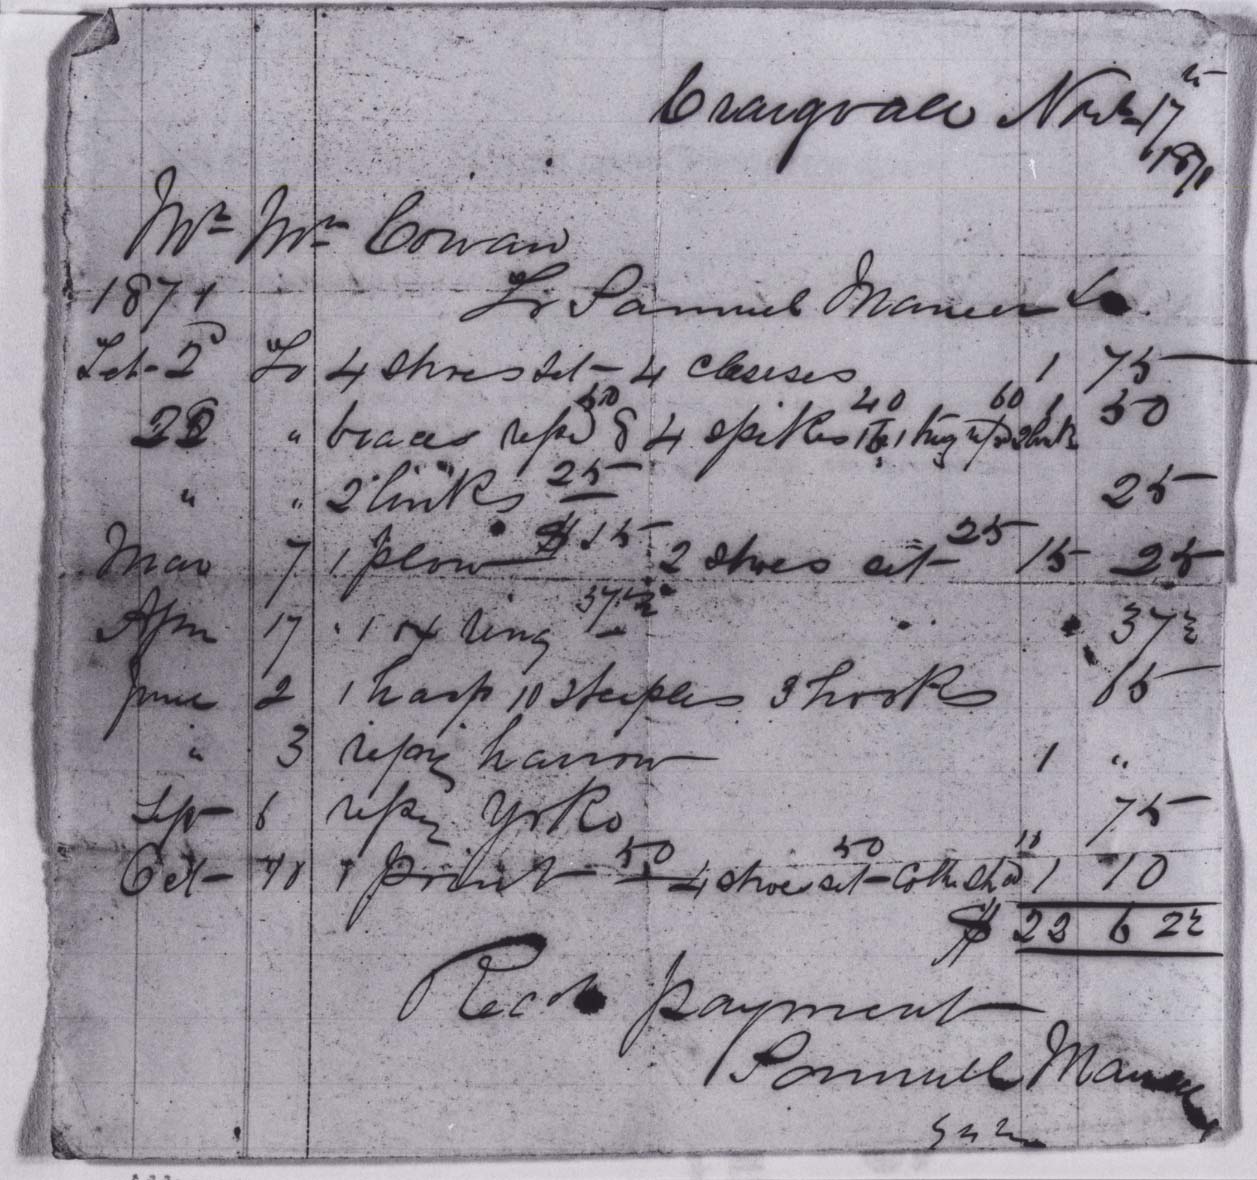 Craigvale Novbr 17th
1871
Mr Wm Cowan
1871 To Samuel Maneer Dr
Feb 2d To 4 shoes set 4 cleseses 1 75
22 " braces repd 50 & 4 spikes 16 40 1 ring 60 2 link 1 50
" " 2 links 25 25
Mar 7 1 plow $15 2 shoes set 25 15 25
Apr 17 1 ox ring 37½ 37½
June 2 1 hasp 10 steeples 3 hooks 65
" 3 repg harrow 1 "
Sep 6 repg yoke 75
Oct 1 point 50 4 shoe set 50 10 1 10
$ 22 62½
Recd payment
Samuel Maneer